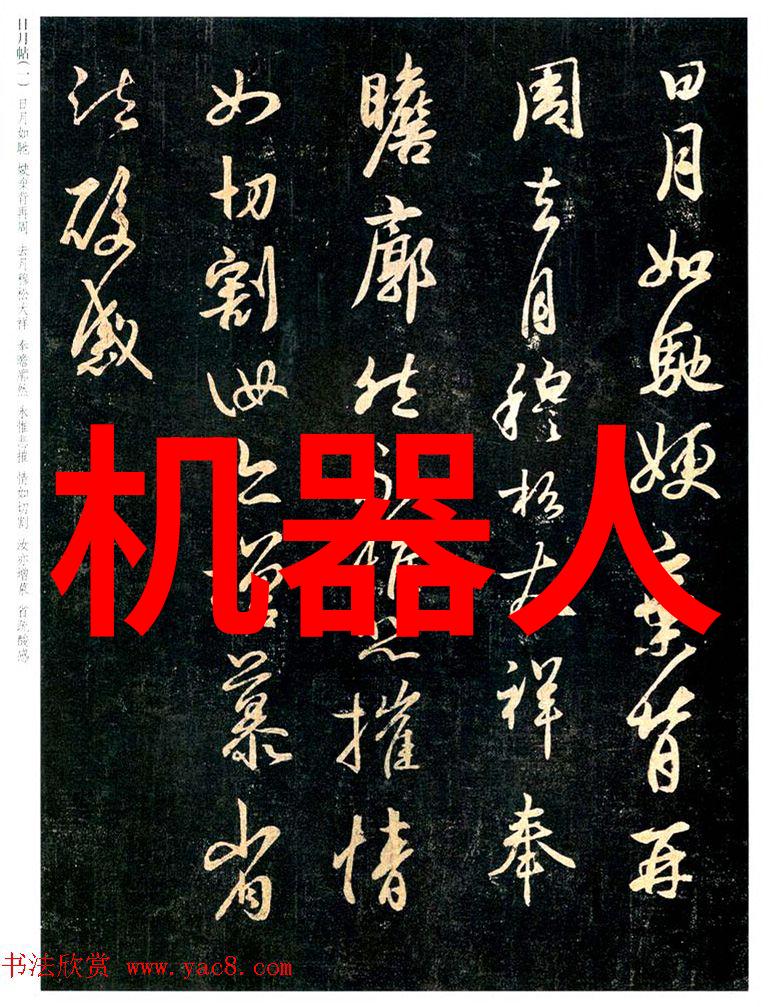 日月如馳嫂棄背再
周去月穆松大祥奉
瞻廓然永惟悲摧情
如切割汝亦增慕省
疏酸感
日月帖(一) 日月如馳 嫂棄背再周 去月穆松大祥 奉瞻廓然 永惟悲摧 情如切割 汝亦增慕 省疏酸感
机器人
书法欣赏 www.yac8.com